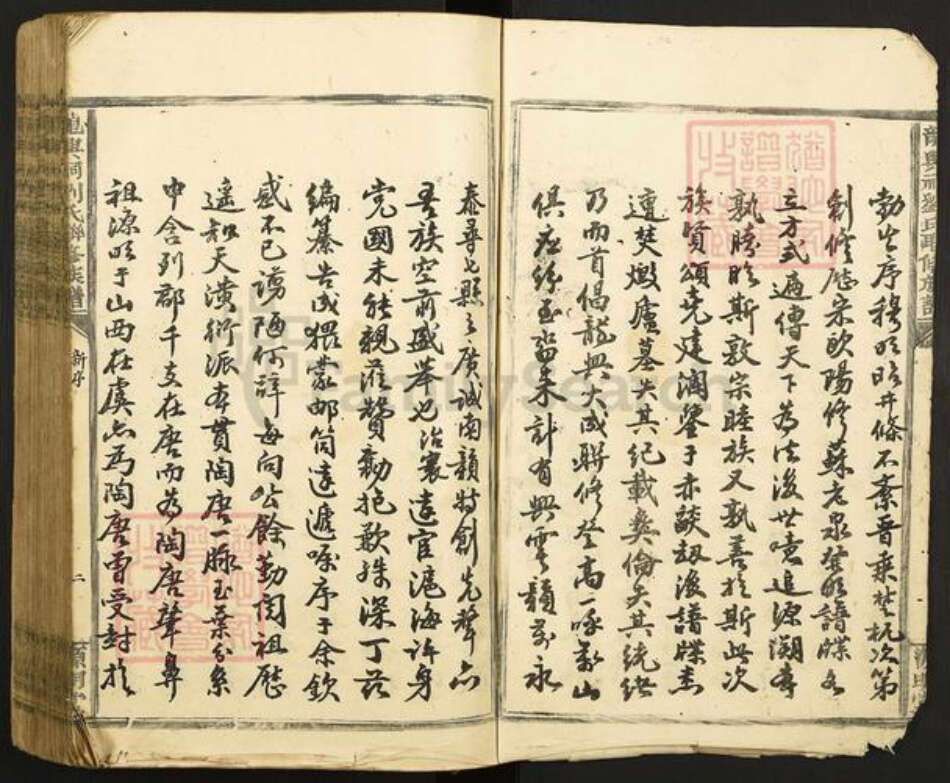 勃生序穆昭昭井條不紊晋乘楚杌次第
創修歷宋歐陽修蘇老泉發明譜牒各
立方式遍傳天下為法後世噫追源溯本
孰勝於斯敦宗睦族又孰善於斯此次
族賢頌堯建澗鑒于赤燄劫後譜牒悉
遭焚燬廬墓失其紀載彝倫失其統緒
乃而首倡龍興大成聯修登高一呼萬山
俱應紛至沓來計有興寧贛萬永
泰尋七縣之廣誠南贛特創先聲亦
吾族空前盛舉也治寰遠官滬海許身
党國未能親蒞贊勷抱歉殊深丁茲
編纂告成猥蒙郵筒遠遞囑序于余欽
感不已謭陋何辭每向公餘勤閱祖歷
遥知天潢衍派本貫陶唐一脉玉葉分系
中含列郡千支在唐而為陶唐肇鼻
祖源於于山西在虞亦為陶唐曾受封於
龍興祠劉氏聯修族譜
新序
二
FamilySearch